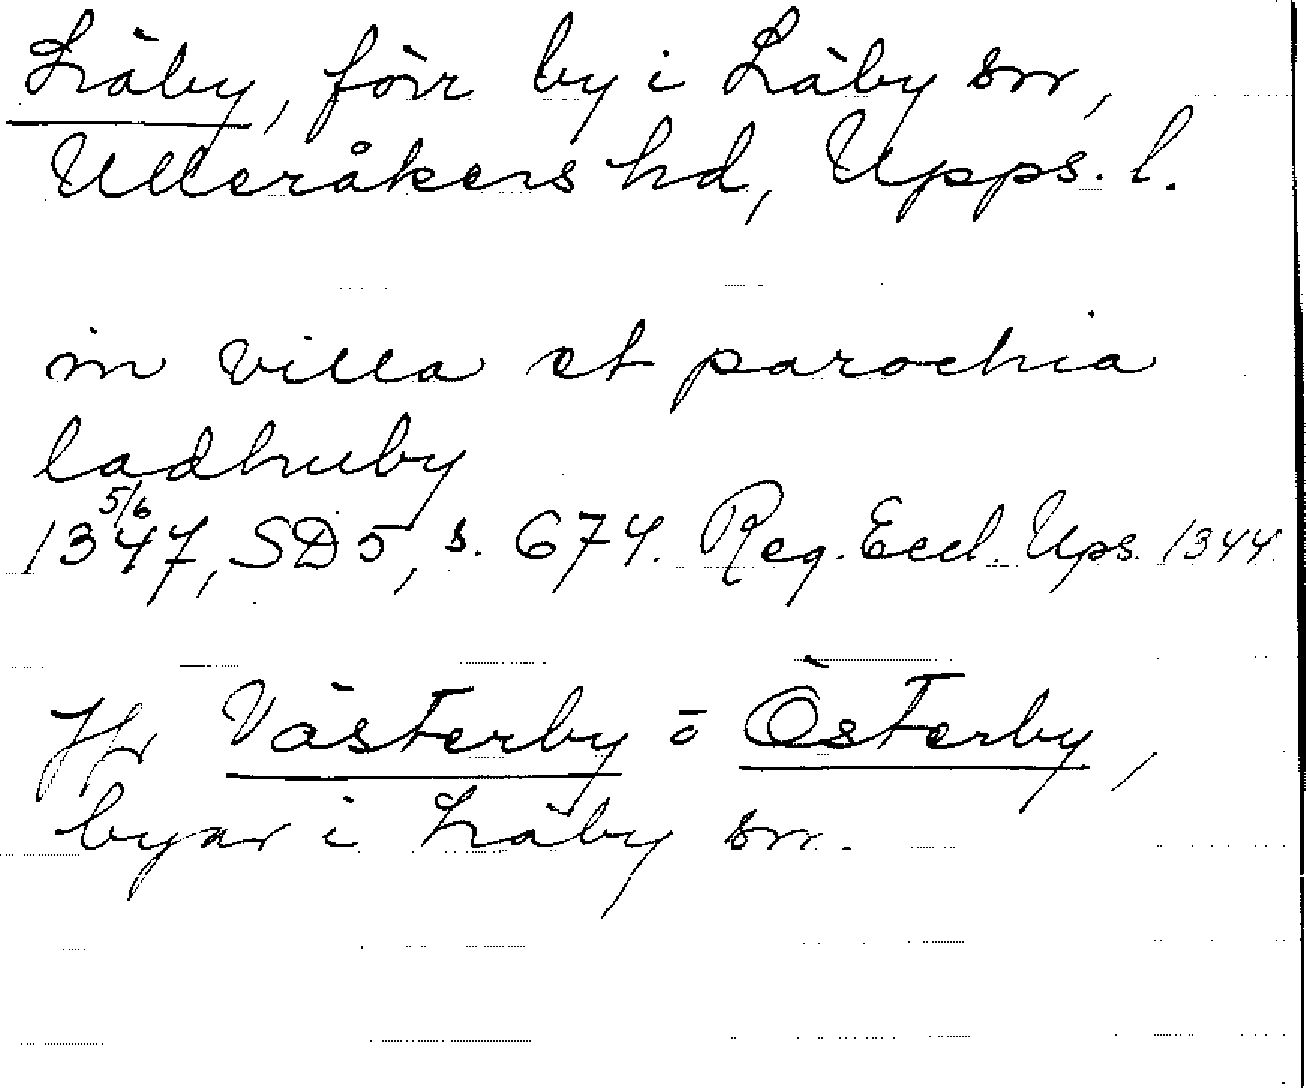 Läby, förr by i Läby sn,
Ulleråkers hd, Upps. l.
in villa et parochia
ladhuby
5/6
1347, SD 5, s. 674. Reg. Eccl. Ups. 1344
Jfr Västerby o Österby,
byar i Läby sn.